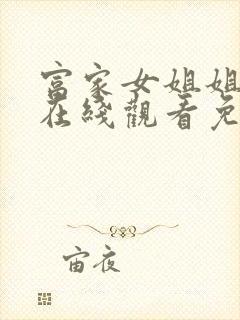 富家女姐姐
在线觀看免
宙夜